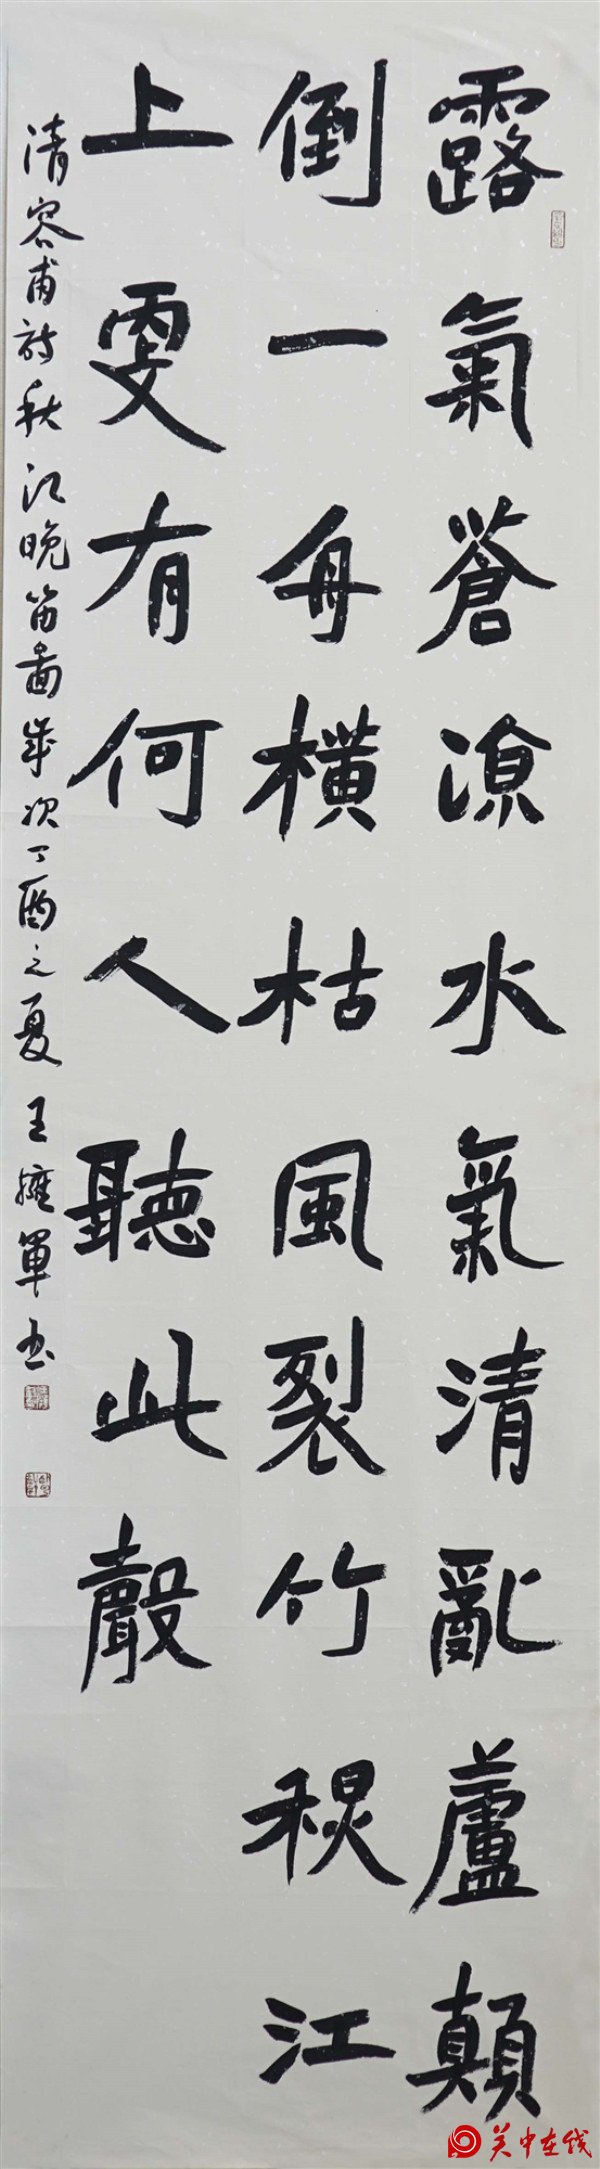 露氣蒼涼水氣清亂蘆顛
倒一舟橫枯風裂竹秋江
上更有何人聽此聲
清容甫詩秋江晚笛圖歲次丁酉之夏王擁軍書
关中在线